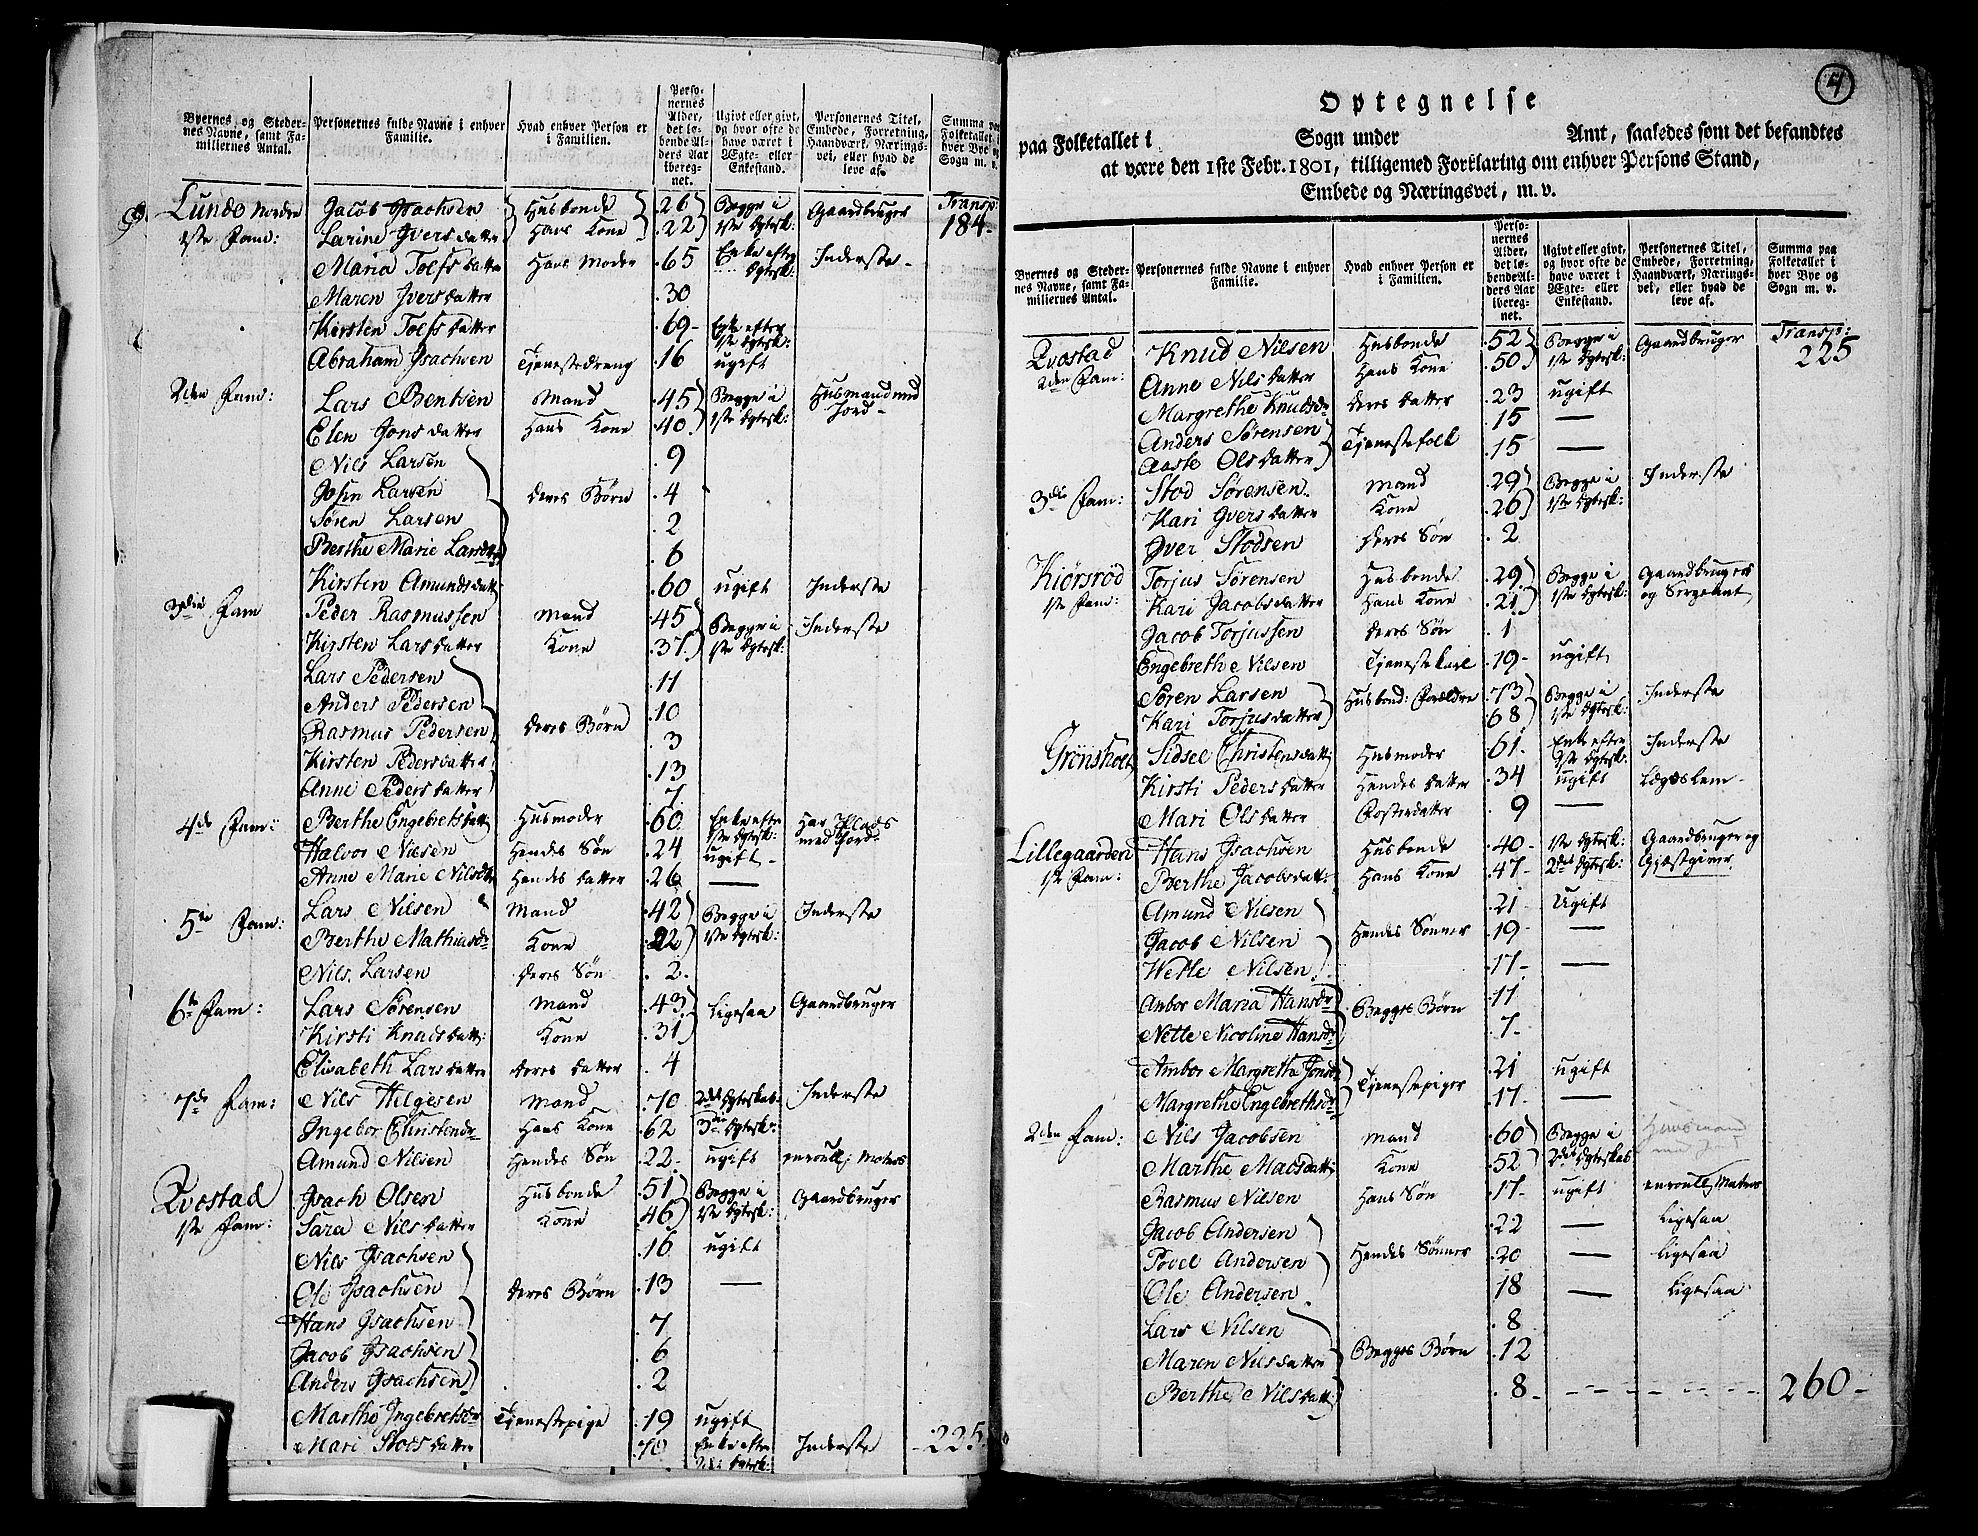 Byernes og Steder-
nes Navne, samt Fa-
miliernes Antal.
Personernes fulde Navne i enhver
Familie.
Hvad enhver Person er
i Familien.
Perso-
nernes
Alder,
det lø-
bende Al-
ders Aar
iberegn-
net.
Ugivt eller givt,
og hvor ofte de
have været i
Ægte- eller
Enkestand.
Personernes Titel,
Embede, Forretning,
Haandværk, Nærings-
vei, eller hvad de
leve af.
Summa
Folketallet
hver Bye
Sogn m. v.
Lunde Nordre Jacob Isachsen Husbonde 26 Begge i Gaardbruger Transp:
1ste Fam: Larine Iversdatter Hans Kone 22 1ste Ægtesk: 184
Maria Toefsdatter Hans Moder 65 Enke efter Ægtesk: Inderste
Maren Iversdatter 30
Kirsten Toefsdatter 69 Enke efter 1ste Ægtesk:
Abraham Isachsen Tjenestedreng 16 ugift
2den Fam: Lars Bentsen Mand 45 Begge i Husmand med
Elen Jonsdatter Hans Kone 40 1ste Ægtesk: Jord
Nils Larsen 9
Larsen deres Børn 4
Søren Larsen 2
Berthe Marie Larsdtr 6
Kirsten Amundsdatt 60 ugift Inderste
3die Fam Peder Rasmussen Mand 45 Begge i Inderste
Kirsten Larsdatter Kone 37 1ste Ægtesk:
Lars Pedersen 11
Anders Pedersen 10
Rasmus Pedersen deres Børn 3
Kirsten Pedersdatter 13
Anne Pedersdatter 7
4de Fam: Berthe Engebretsdatt Husmoder 60 Enke efter 1ste Ægtesk: Har Plads med Jord
Halvor Nilsen Hendes Søn 24 ugift
Anne Marie Nilsdtr Hendes datter 26 —
5te Fam: Lars Nilsen Mand 42 Begge i Inderste
Berthe Mathiasdr Kone 22 1ste Ægtesk:
Nils Larsen deres Søn 2
6te Fam: Lars Sørensen Mand 43 Ligesaa Gaardbruger
Kirsti Knudsdatt: Kone 31
Elisabeth Larsdatter deres datter 4
7de Fam: Nils Helgesen Mand 70 2det Ægteskab: Inderste
Ingebor Christensdr Hans Kone 62 3die Ægtesk:
Amund Nilsen Hendes Søn 22 ugift enroull: Matros
Qvostad Isach Olsen Husbonde 51 Begge i Gaardbruger
1ste Fam: Sara Nilsdatter Kone 46 1ste Ægtesk:
Nils Isachsen 16 ugift
Ole Isachsen deres Børn 13 —
Hans Isachsen 7
Jacob Isachsen 6
Anders Isachsen 2
Marthe Ingebretsdr Tjenestepige 19 ugift
Mari Stodsdatter 70 Enke efter 2det Ægtesk: Inderste 225
4
Optegnelse
paa Folketallet i Sogn under Amt, saaledes som det befandtes
at være den 1ste Febr. 1801, tilligemed Forklaring om enhver Persons Stand,
Embede og Næringsvei, m. v.
Byernes og Steder-
nes Navne, samt Fa-
miliernes Antal.
Personernes fulde Navne i enhver
Familie.
Hvad enhver Person er
i Familien.
Perso-
nernes
Alder,
det lø-
bende Al-
ders Aar
iberegn-
net.
Ugivt eller givt,
og hvor ofte de
have været i
Ægte- eller
Enkestand.
Personernes Titel,
Embede, Forretning,
Haandværk, Nærings-
vei, eller hvad de
leve af.
Summa paa
Folketallet i
hver Bye og
Sogn m. v.
Qvostad Knud Nilsen Husbonde 52 Begge i Gaardbruger Transp:
2den Fam: Anne Nilsdatter Hans Kone 50 1ste Ægtesk: 225
Margrethe Knudsdr deres datter 23 ugift
Anders Sørensen Tjenestefolk 15 —
Aaste Olsdatter 15 —
3die Fam: Stod Sørensen Mand 29 Begge i Inderste
Kari Iversdatter Kone 26 1ste Ægtesk:
Iver Stodsen deres Søn 2
Kiörsröd Torjus Sørensen Husbonde 29 Begge i Gaardbruger
1ste Fam: Kari Jacobsdatter Hans Kone 21 1ste Ægtesk: og Sergeant
Jacob Torjussen deres Søn 1
Engebreth Nilsen Tjenestekarl 19 ugift
Søren Larsen Husbond: Forældre 73 Begge i Inderste
Kari Torjusdatter 68 1ste Ægtesk:
Grönsholt Sidsel Christensdatt: Husmoder 61 Enke efter Ægtesk: Inderste
Kirsti Pedersdatter Hendes datter 34 ugift Lægdslem
Mari Olsdatter Fosterdatter 9 —
Lillegaarden Hans Isachsen Husbonde 40 1ste Ægtesk: Gaardbruger og
1ste Fam: Berthe Jacobsdatt: Hans Kone 47 2det Ægtesk: Gjæstgiver
Amund Nilsen 21 Ugift
Jacob Nilsen Hendes Sønner 19 —
Wetle Nilsen 17 —
Anbor Maria Hansdr Begges Børn 11
Nelle Nicoline Hansdr 7
Ambor Margretha Jonsdr Tjenestepiger 21 ugift
Margrethe Engebrethsdr 17 —
2den Fam: Nils Jacobsen Mand 60 Begge i Huusmand
Marthe Madsdatt: Kone 52 2det Ægteskab med
Rasmus Nilsen Hans Søn 17 ugift enroull: Matros
Jacob Andersen 22 — Ligesaa
Povel Andersen Hendes Sønner 20 — Ligesaa
Ole Andersen 18 — Ligesaa
Lars Nilsen 8
Maren Nilsdatter Begges Børn 12
Berthe Nilsdatt: 8 260